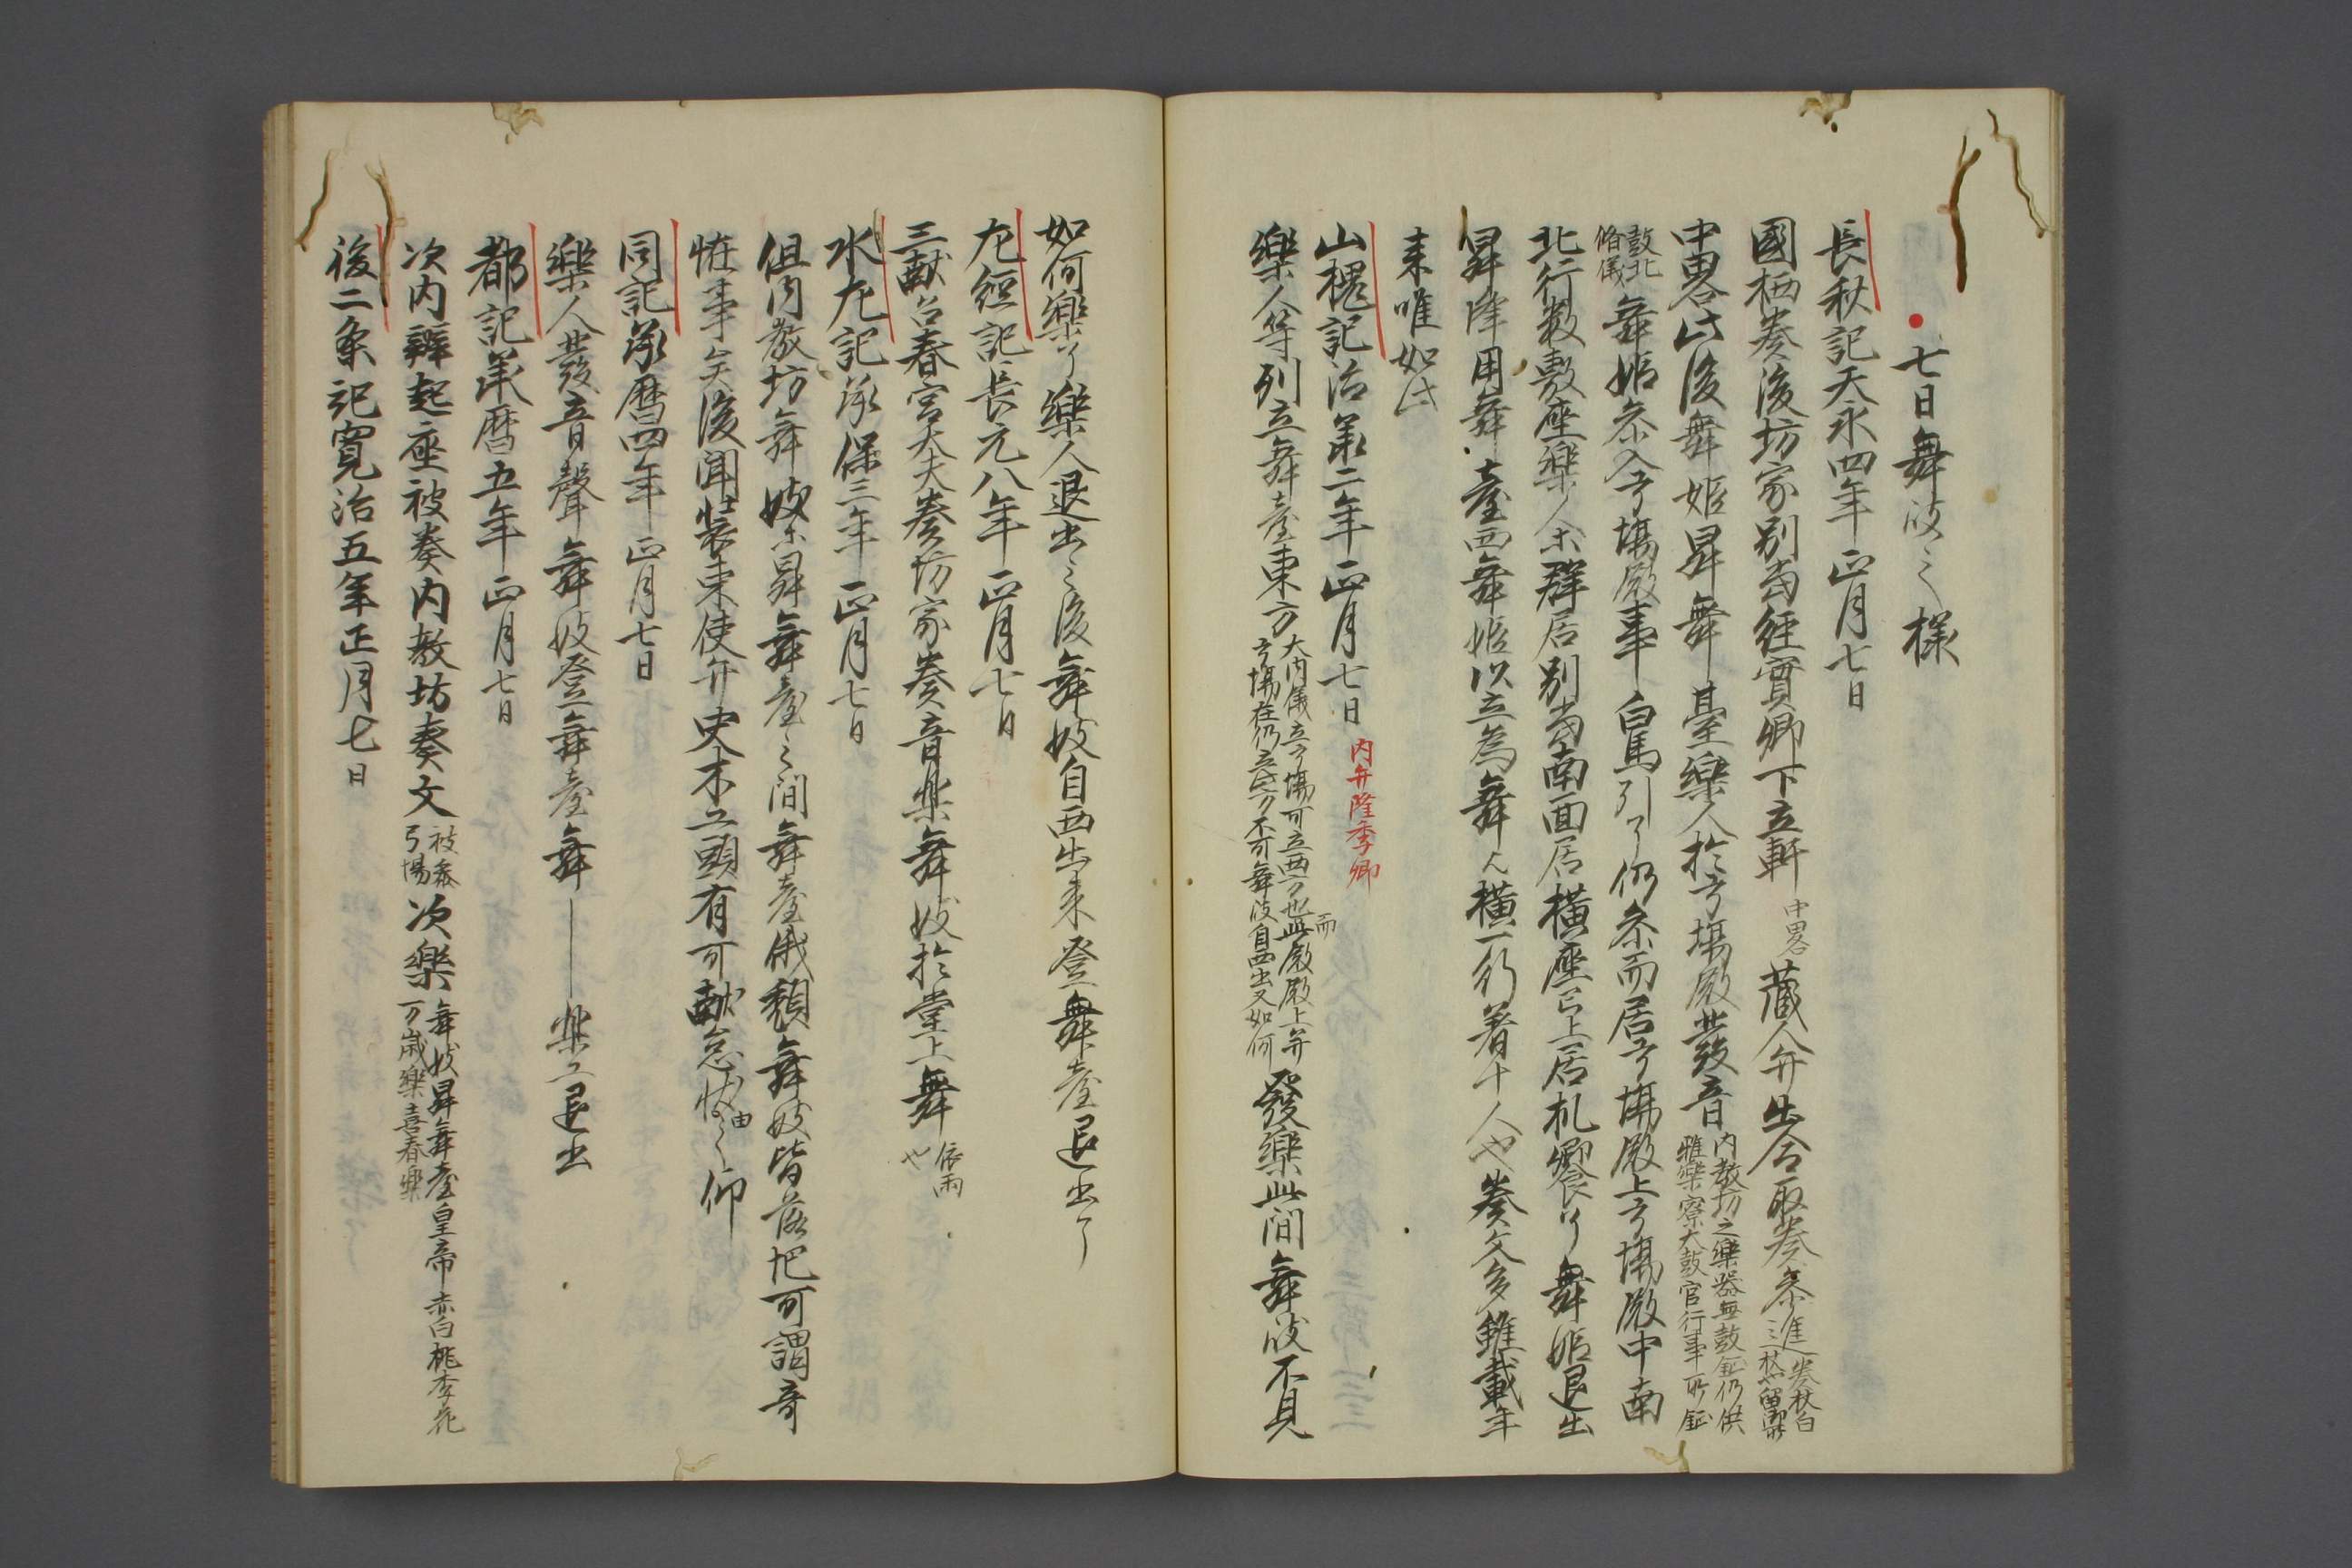 七日舞妓之様
長秋記天永四年正月七日
國栖奏後坊家別當經實卿下立軒中畧蔵人弁出合取奏参進奏杖白
杖也留御所
中畧此後舞姫昇舞臺樂人於弓場殿發音内教坊之樂器無鼓鉦仍供
雅樂寮大鼓官行事所鉦
鼓北
脩儀舞姫参入弓場殿事白馬引了仍参而居弓場殿上弓場殿中南
北行数敷座樂人等群居別當南面居横座已上居机饗了舞姫退出
昇降用舞臺西舞姫以立為舞人横一行着十人也奏文多雖載年
来唯如此
山槐記治承二年正月七日 内弁隆季卿
樂人等列立舞臺東方大内儀立弓場可立西方也而此殿殿上弁
弓場在仍立此方不可舞妓自西出又如何發樂此間舞妓不見
如何樂了樂人退出之後舞妓自西出来登舞臺退出了
左經記長元八年正月七日
三献召春宮大夫奏坊家奏音樂舞妓於堂上舞依雨
也
水左記承保三年正月七日
但内教坊舞妓等昇舞臺之間舞臺俄頽舞妓皆落地可謂奇
恠事矣後聞装束使弁史木工頭有可献怠状之由仰
同記承暦四年正月七日
樂人發音聲舞妓登舞臺舞――樂工退出
都記承暦五年正月七日
次内辨起座被奏内教坊奏文被参
弓場次樂舞妓昇舞臺皇帝赤白桃李花
万歳樂喜春樂
後二条記寛治五年正月七日